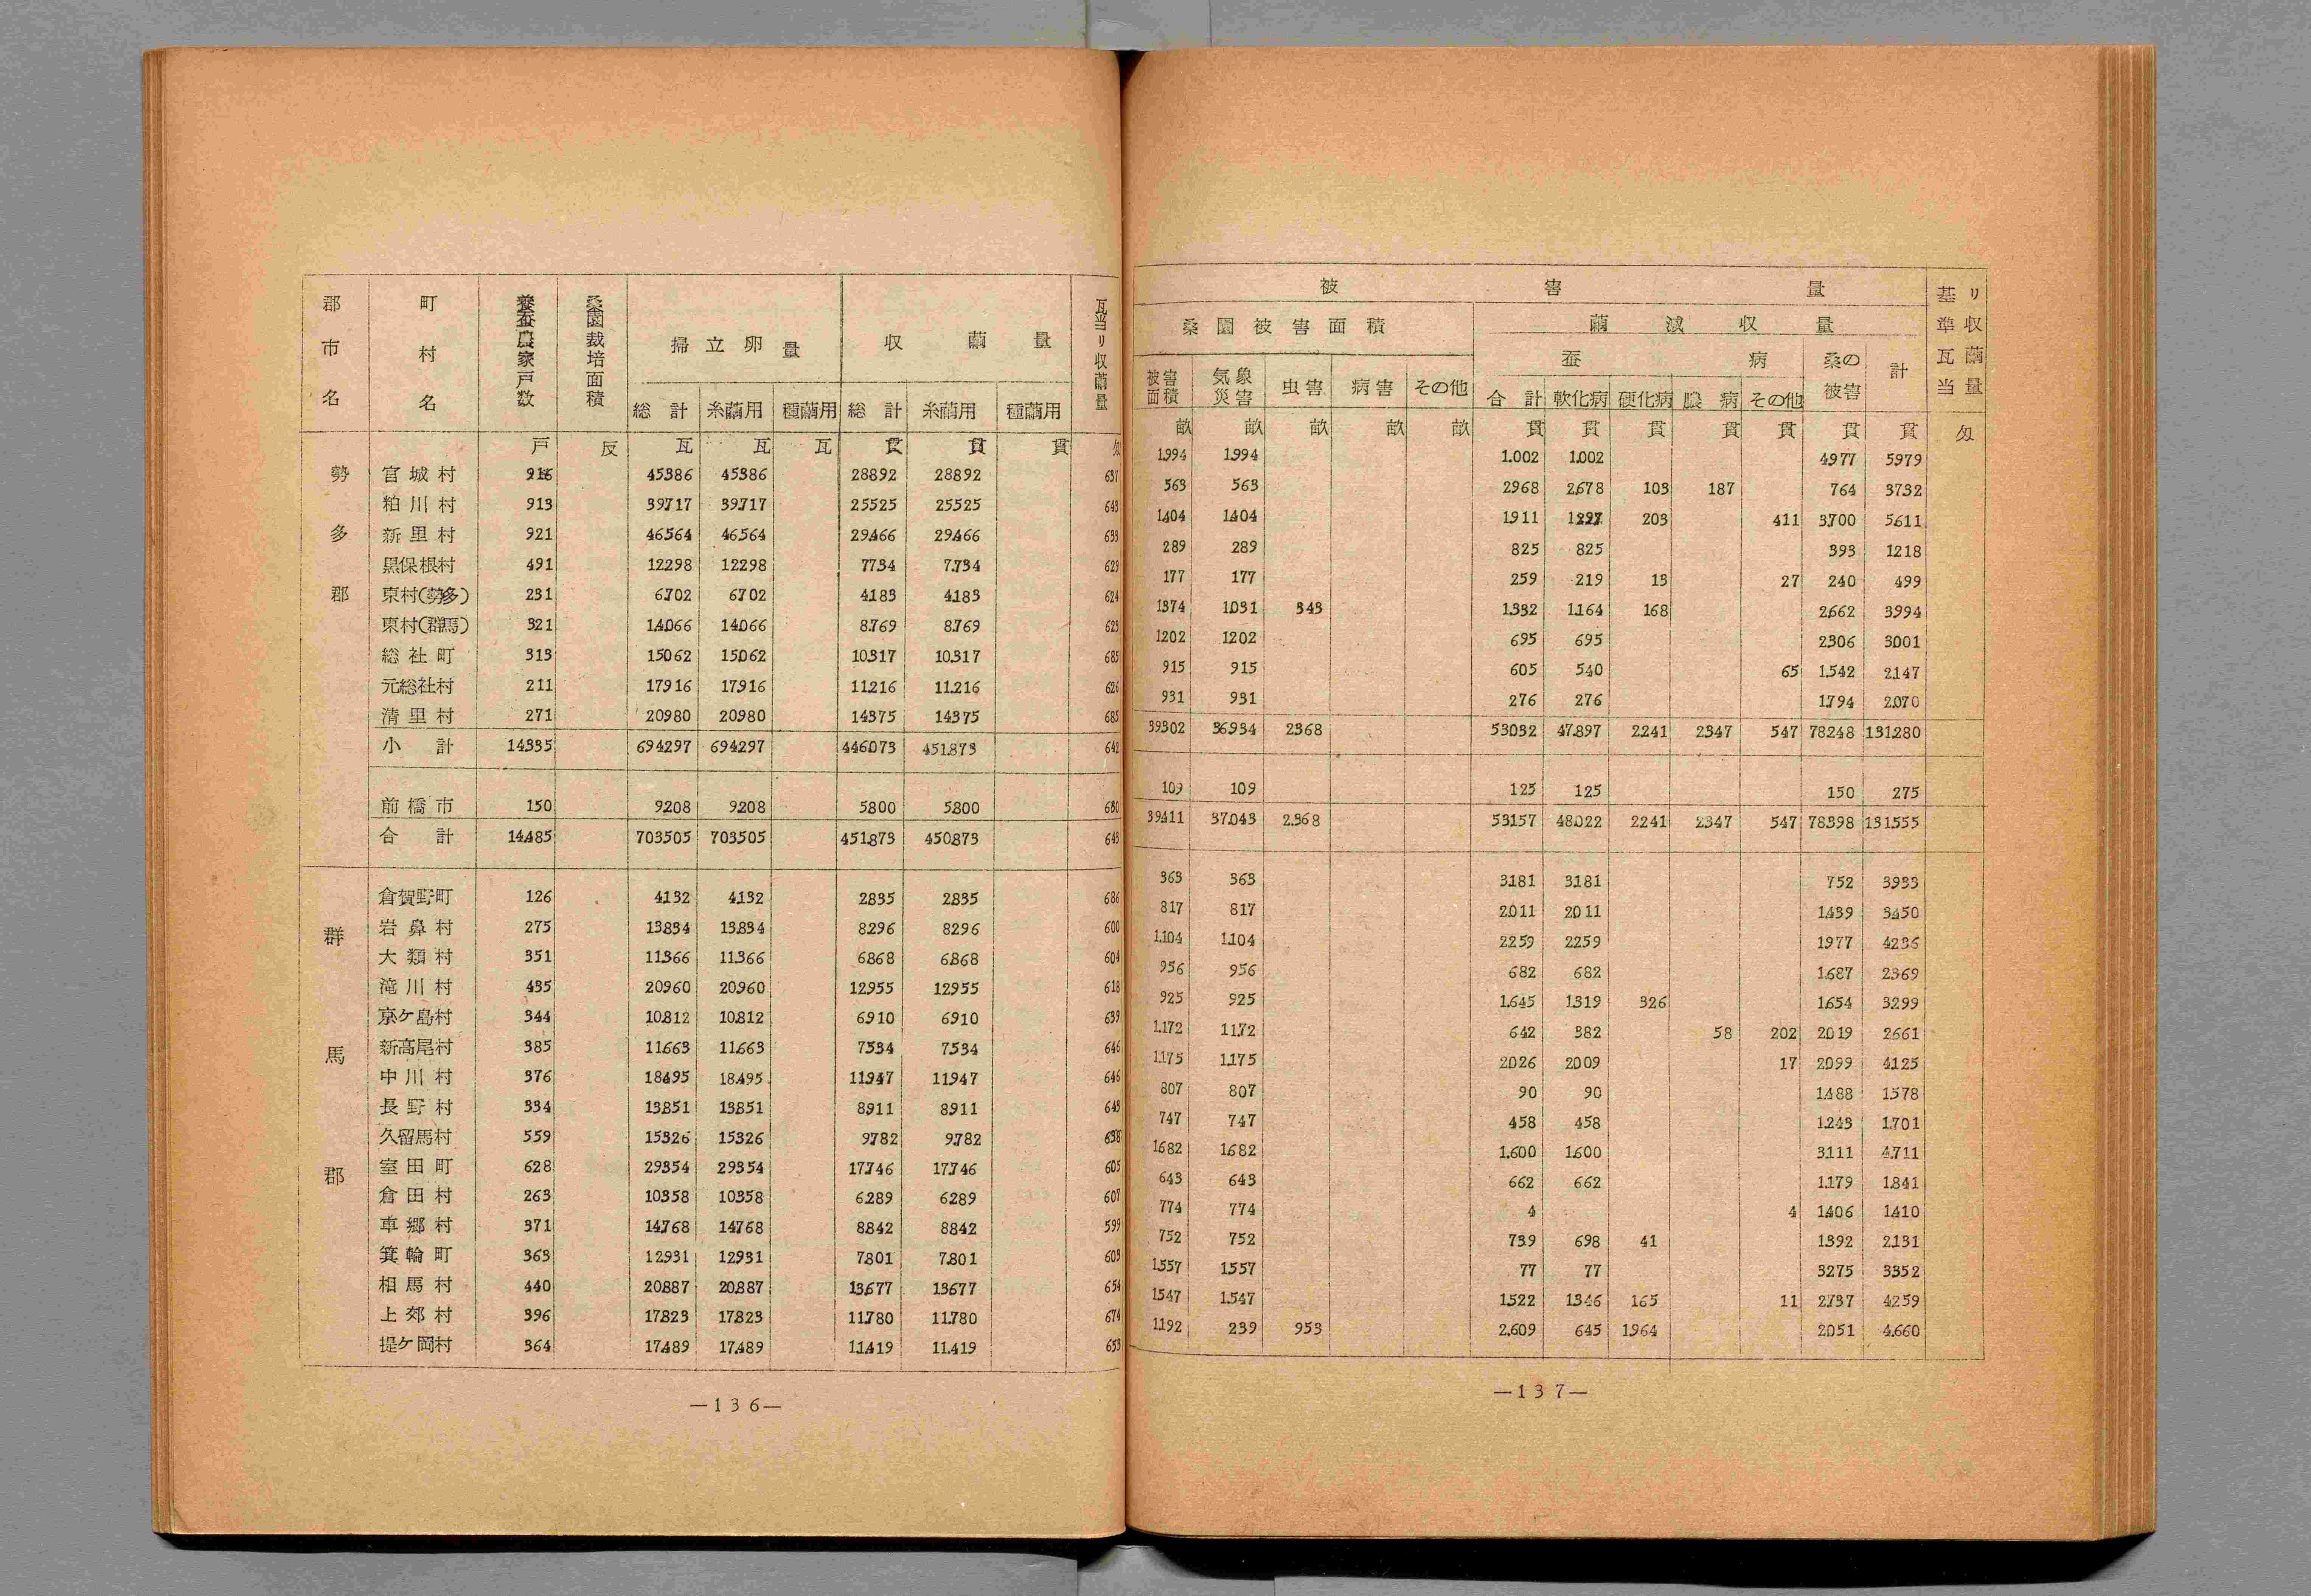 郡市名 町村名 養蚕農家戸数 桑園栽培面積 掃立卵量 収繭量 瓦当リ収繭量
総計 糸繭用 種繭用 総計 糸繭用 種繭用
戸 反 瓦 瓦 瓦 貫 貫 貫 匁
勢多郡
宮城村 916 45386 45386 28892 28892 637
粕川村 913 39717 39717 25525 25525 643
新里村 921 46564 46564 29466 29466 633
黒保根村 491 12298 12298 7734 7734 629
東村(勢多) 231 6702 6702 4183 4183 624
東村(群馬) 321 14066 14066 8769 8769 623
総社町 313 15062 15062 10317 10317 685
元総社村 211 17916 17916 11216 11216 626
清里村 271 20980 20980 14375 14375 685
小計 14335 694297 694297 446073 451873 642
前橋市 150 9208 9208 5800 5800 630
合計 14485 703505 703505 451873 450873 643
群馬郡
倉賀野町 126 4132 4132 2835 2835 686
岩鼻村 275 13834 13834 8296 8296 600
大類村 351 11366 11366 6868 6868 604
滝川村 435 20960 20960 12955 12955 618
京ケ島村 344 10812 10812 6910 6910 639
新高尾村 385 11663 11663 7534 7534 646
中川村 376 18495 18495 11947 11947 646
長野村 334 13851 13851 8911 8911 643
久留馬村 559 15326 15326 9782 9782 638
室田町 628 29354 29354 17746 17746 605
倉田村 263 10358 10358 6289 6289 607
車郷村 371 14768 14768 8842 8842 599
箕輪町 363 12931 12931 7801 7801 603
相馬村 440 20887 20887 13677 13677 654
上郊村 396 17823 17823 11780 11780 674
提ケ岡村 364 17489 17489 11419 11419 653
—136—
被害量 基準瓦当リ収繭量
桑園被害面積 繭減収量
蚕病 桑の被害 計
被害面積 気象災害 虫害 病害 その他 合計 軟化病 硬化病 膿病 その他
畝 畝 畝 畝 畝 貫 貫 貫 貫 貫 貫 貫 匁
1994 1994 1.002 1002 4977 5979
563 563 2968 2678 103 187 764 3732
1404 1404 1911 203 411 3700 5611
289 289 825 825 393 1218
177 177 259 219 13 27 240 499
1374 1031 343 1332 1164 168 2662 3994
1202 1202 695 695 2306 3001
915 915 605 540 65 1542 2147
931 931 276 276 1794 2070
39302 36934 2368 53032 47897 2241 2347 547 78248 131280
109 109 125 125 150 275
39411 37043 2368 53157 48022 2241 2347 547 78398 131555
363 363 3181 3181 752 3933
817 817 2011 2011 1439 3450
1104 1104 2259 2259 1977 4236
956 956 682 682 1687 2369
925 925 1645 1319 326 1654 3299
1172 1172 642 382 58 202 2019 2661
1175 1175 2026 2009 17 2099 4125
807 807 90 90 1488 1578
747 747 458 458 1243 1701
1682 1682 1.600 1600 3111 4711
643 643 662 662 1179 1841
774 774 4 4 1406 1410
752 752 739 698 41 1392 2131
1557 1557 77 77 3275 3352
1547 1547 1522 1346 165 11 2737 4259
1192 239 953 2.609 645 1964 2051 4.660
—137—